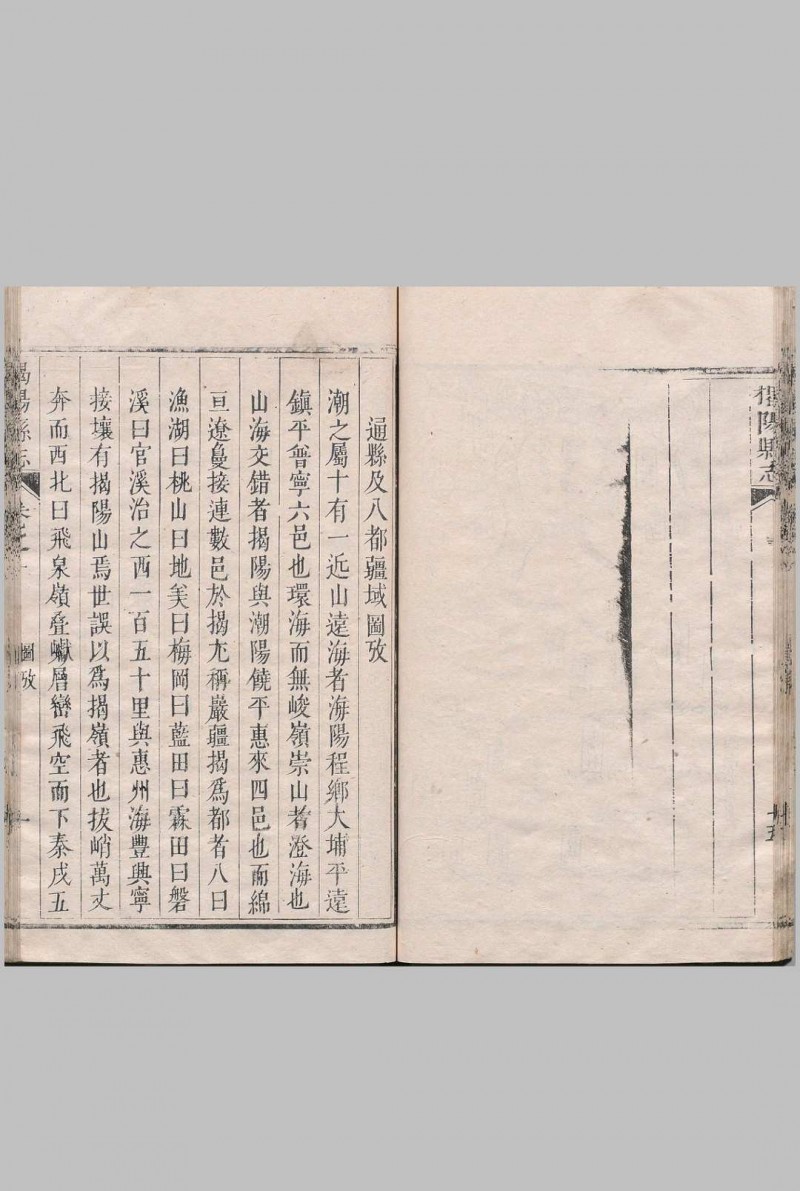 揭陽縣志
十五
通縣及八都疆域圖攷
潮之屬十有一近山遠海者海陽程鄉大埔平遠
鎮平普寧六邑也環海而無峻嶺崇山者澄海也
山海交錯者揭陽與潮陽饒平惠來四邑也而綿
亘遼敻接連數邑於揭尤稱巖疆揭爲都者八曰
漁湖曰桃山曰地美曰梅岡曰藍田曰霖田曰磐
溪曰官溪治之西一百五十里與惠州海豐興寧
接壤有揭陽山焉世誤以爲揭嶺者也拔峭萬丈
奔而西北曰飛泉嶺叠巘層巒飛空而下秦戍五
揭陽縣志
卷之一
圖攷
一